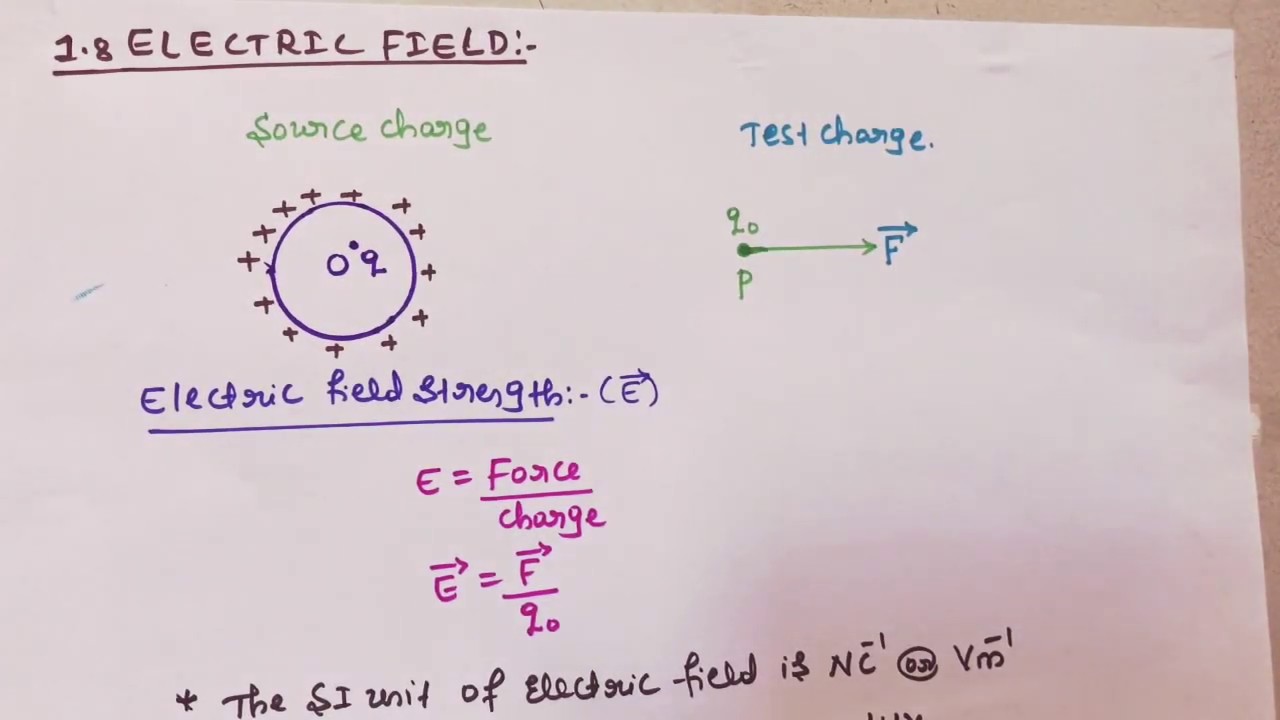 1.8 ELECTRIC FIELD:-
Source charge
Test charge.
+ + + + + + + + + + + + + +
O q
q₀
F⃗
P
Electric field Strength:- (E⃗)
E = Force / charge
E⃗ = F⃗ / q₀
* The SI unit of Electric field is NC⁻¹ or Vm⁻¹